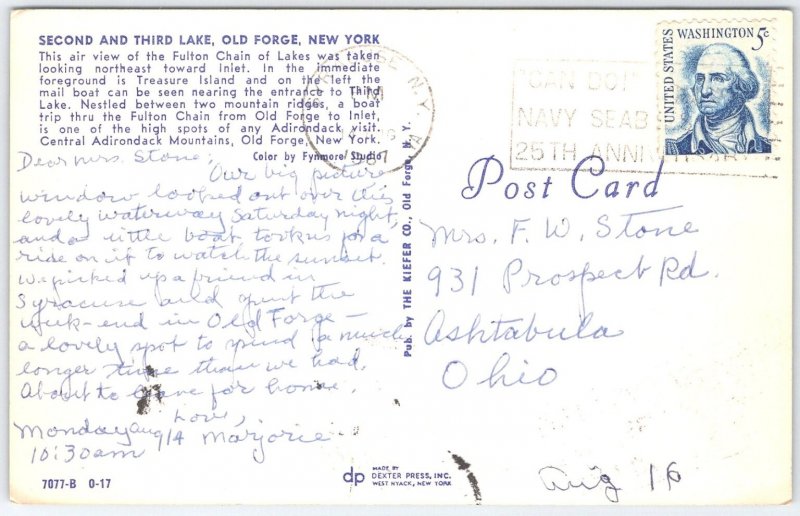 SECOND AND THIRD LAKE, OLD FORGE, NEW YORK
This air view of the Fulton Chain of Lakes was taken
looking northeast toward Inlet. In the immediate
foreground is Treasure Island and on the left the
mail boat can be seen nearing the entrance to Third
Lake. Nestled between two mountain ridges, a boat
trip thru the Fulton Chain from Old Forge to Inlet,
is one of the high spots of any Adirondack visit.
Central Adirondack Mountains, Old Forge, New York.
Color by Fynmore Studio
Dear Mrs. Stone;
Our big picture
window looked out over this
lovely waterway Saturday night,
and a little boat took us for a
ride on it to watch the sunset.
We picked up a friend in
Syracuse and spent the
week-end in Old Forge –
a lovely spot to spend a much
longer time than we had.
About to leave for home.
Love,
Monday Aug 14 Marjorie
10:30am
7077-B 0-17
Pub. by THE KIEFER CO., Old Forge, N. Y.
dp
MADE BY
DEXTER PRESS, INC.
WEST NYACK, NEW YORK
N.Y.
1967
"CAN DO!"
NAVY SEAB
25TH ANNIVERSARY
UNITED STATES
WASHINGTON 5c
Post Card
Mrs. F. W. Stone
931 Prospect Rd.
Ashtabula
Ohio
Aug 16